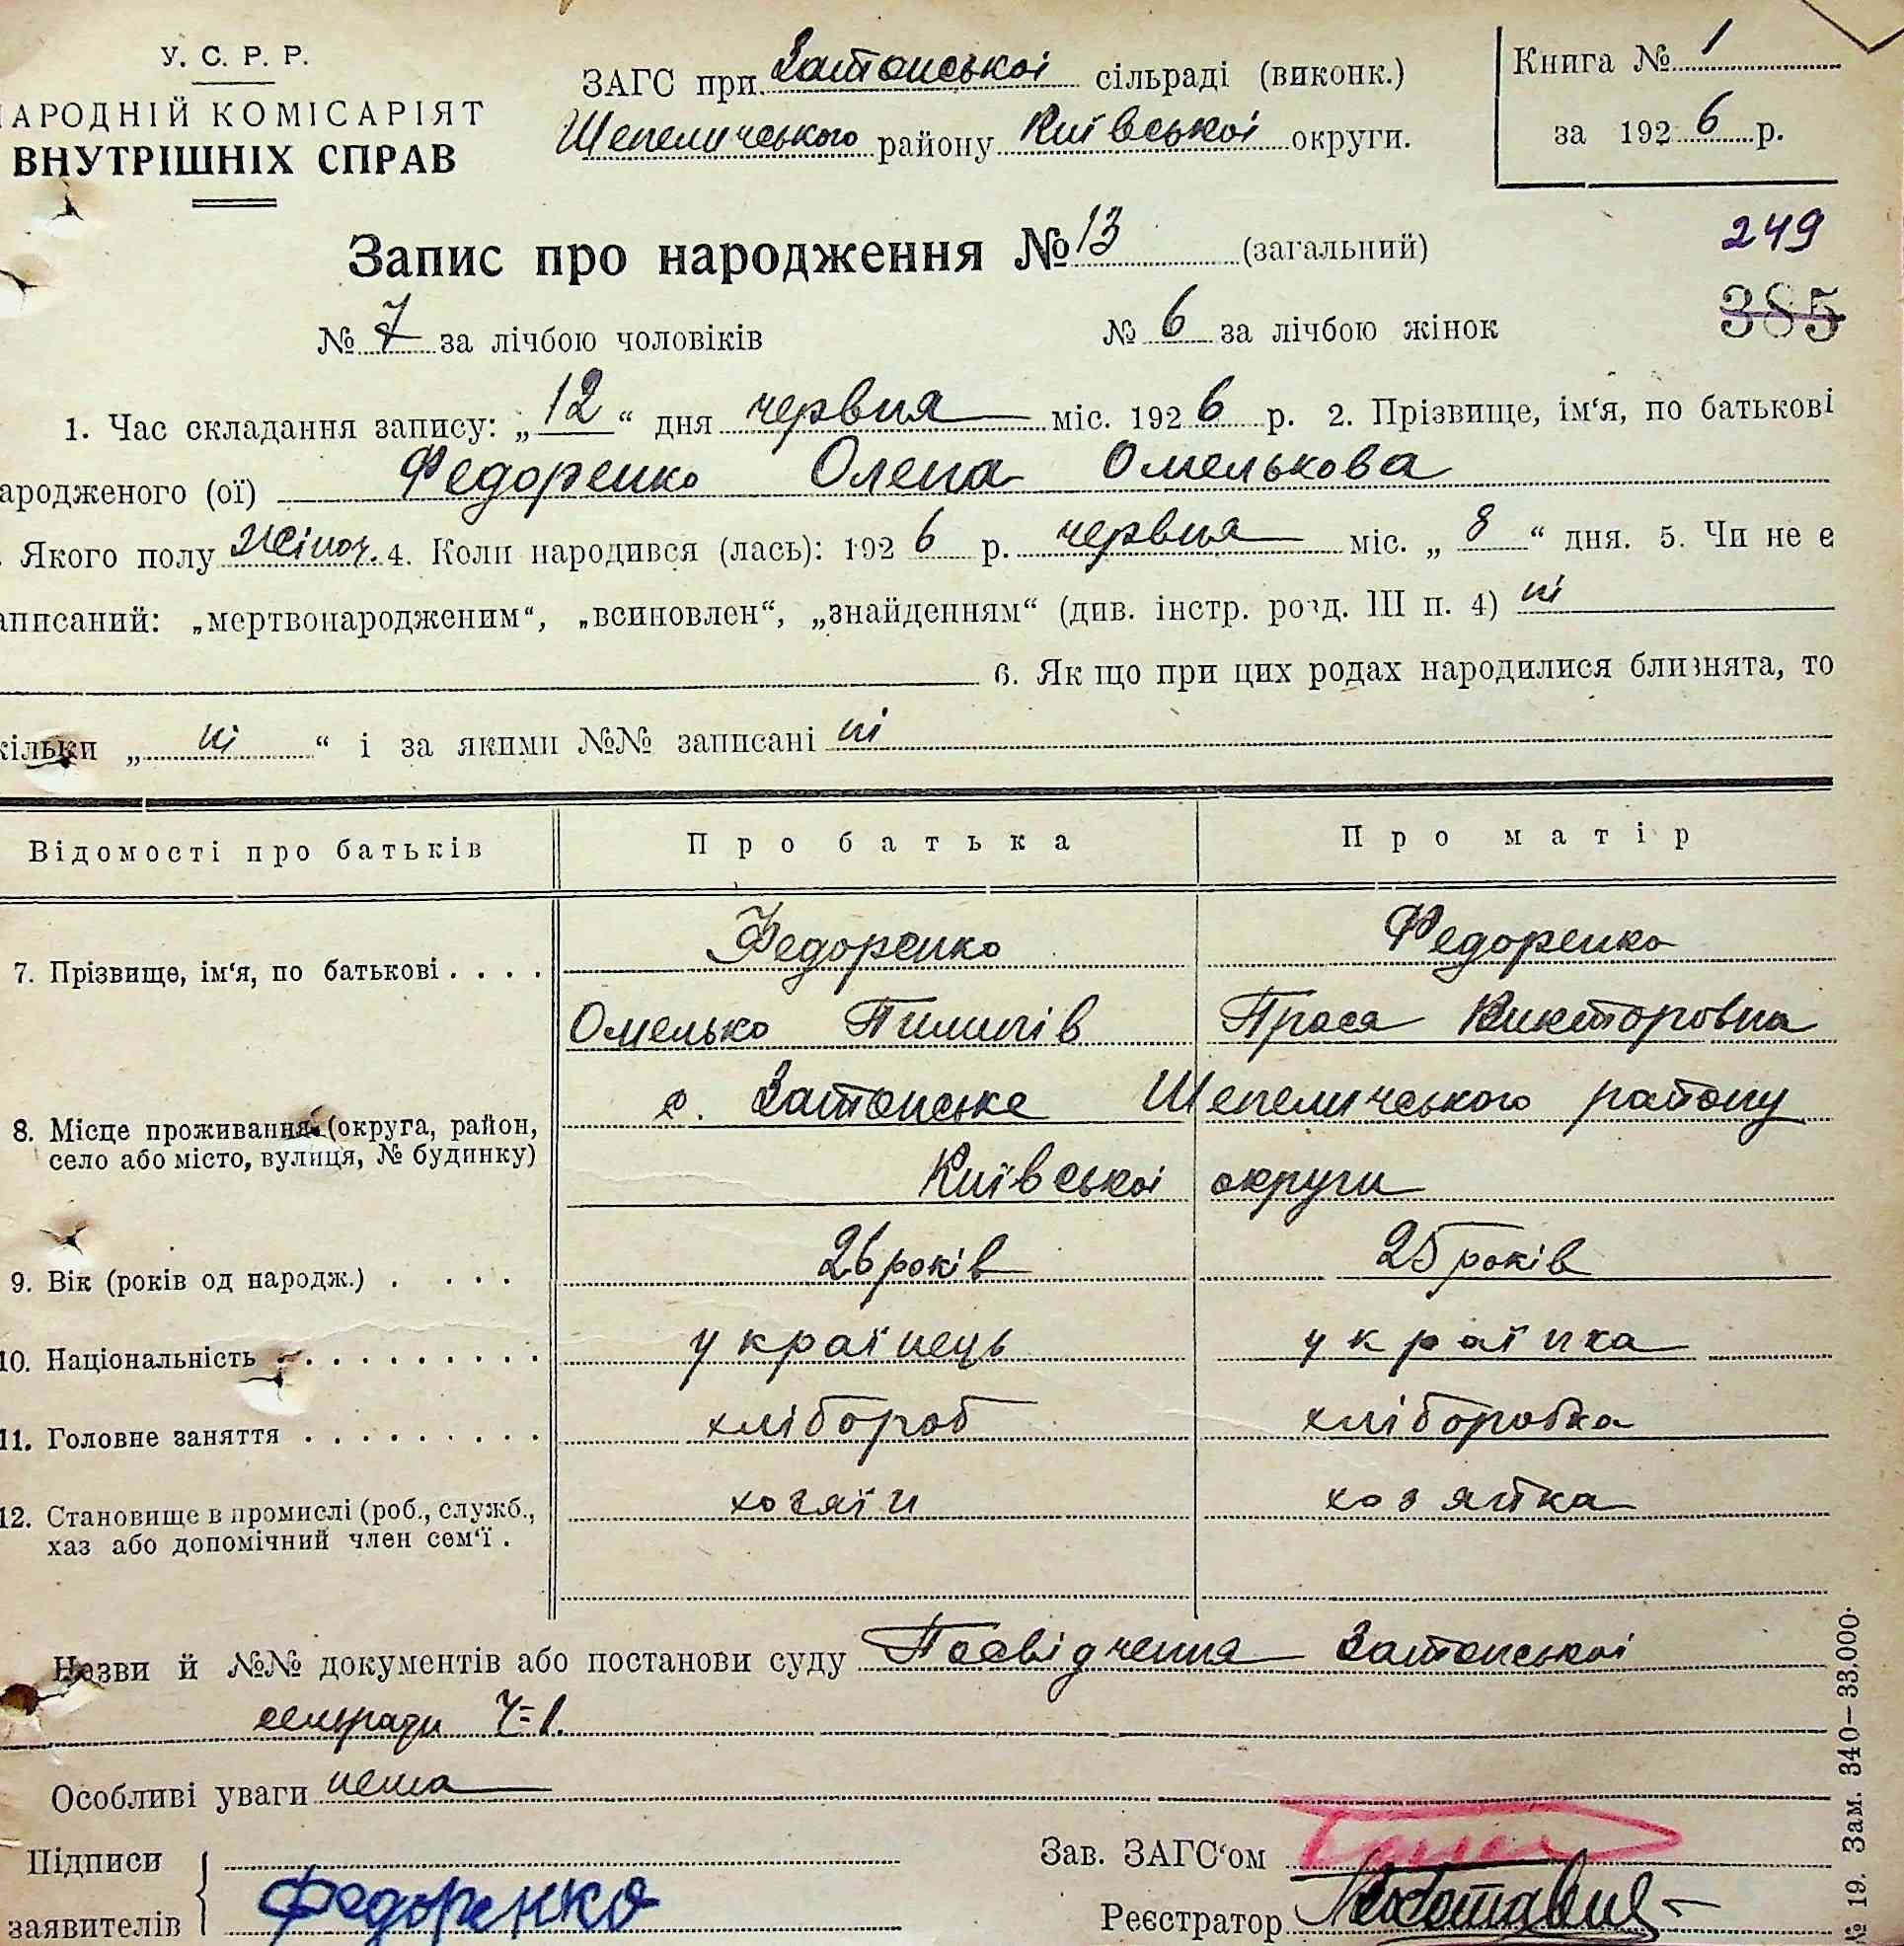 У. С. Р. Р.
АРОДНІЙ КОМІСАРІЯТ
ВНУТРІШНІХ СПРАВ
ЗАГС при Затонської сільраді (виконк.)
Шепеличського району Київської округи.
Книга № 1
за 1926 р.
Запис про народження № 13 (загальний)
249
385
№ 7 за лічбою чоловіків № 6 за лічбою жінок
1. Час складання запису: „12“ дня червня міс. 1926 р. 2. Прізвище, ім‘я, по батькові
ародженого (ої) Федоренко Олена Омелькова
Якого полу жіноч. 4. Коли народився (лась): 1926 р. червня міс. „8“ дня. 5. Чи не є
аписаний: „мертвонародженим“, „всиновлен“, „знайденням“ (див. інстр. розд. III п. 4) ні
6. Якщо при цих родах народилися близнята, то
кільки „ні“ і за якими №№ записані ні
Відомості про батьків Про батька Про матір
7. Прізвище, ім‘я, по батькові . . . . Федоренко Федоренко
Омелько Пилипів Прася Викторовна
8. Місце проживання (округа, район, село або місто, вулиця, № будинку) с. Затонське Шепеличського району
Київської округи
9. Вік (років од народж.) . . . . 26 років 25 років
10. Національність . . . . . . . . . . українець українка
11. Головне заняття . . . . . . . . . хлібороб хліборобка
12. Становище в промислі (роб., служб., хозяїн хозяйка
хаз або допомічний член сем‘ї .
Назви й №№ документів або постанови суду Посвідчення Затонської
сельради Ч=1.
Особливі уваги нема
Підписи
заявителів Федоренко
Зав. ЗАГС‘ом
Реєстратор
№ 19. Зам. 340—33.000.